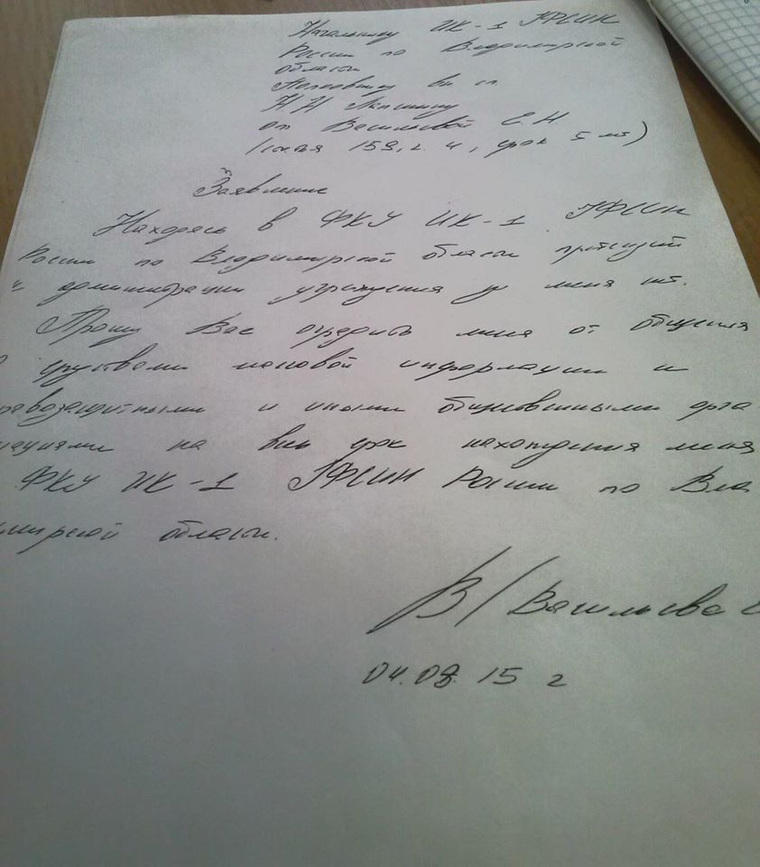 Начальнику ИК-1 УФСИН
России по Владимирской
области
вн сл.
Н Н
от Васильевой Е Н
159, ч. 4, срок 5 лет)
Заявление
Находясь в ФКУ ИК-1 УФСИН
России по Владимирской области претензий
к администрации учреждения у меня нет.
Прошу Вас оградить меня от общения
средствами массовой информации и
равозащитными и иными общественными орга
зациями на весь срок нахождения меня
ФКУ ИК-1 УФСИН России по Вла
мирской области.
В/Васильева Е
04.08.15 г